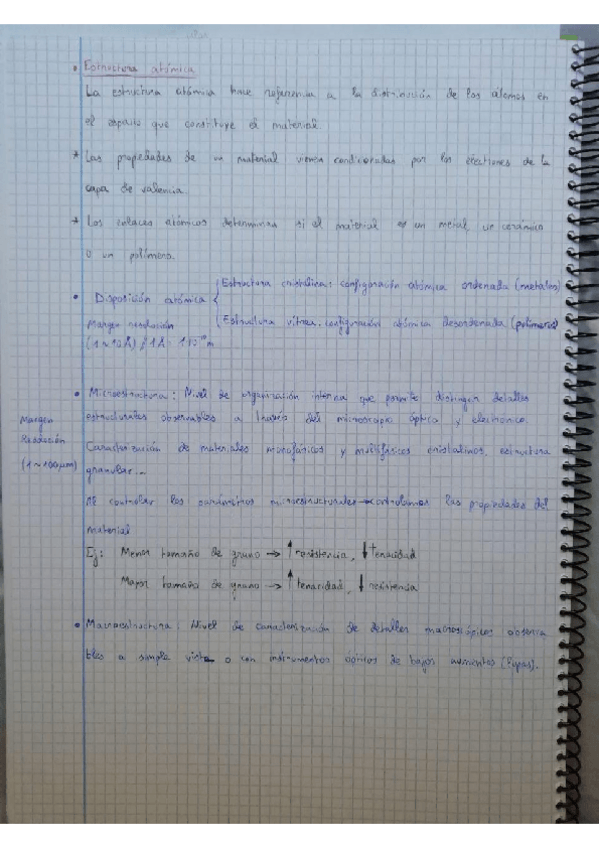 • Estructura atómica
La estructura atómica hace referencia a la distribución de los átomos en
el espacio que constituye el material.
* Las propiedades de un material vienen condicionadas por los electrones de la
capa de valencia.
* Los enlaces atómicos determinan si el material es un metal, un cerámico
o un polímero.
• Disposición atómica { Estructura cristalina: configuración atómica ordenada (metales)
Estructura vítrea: configuración atómica desordenada (polímeros)
Margen resolución
(1 ~ 10 Å) / 1 Å = 1·10⁻¹⁰ m
• Microestructura: Nivel de organización interna que permite distinguir detalles
estructurales observables a través del microscopio óptico y electrónico.
Margen
Resolución
(1 ~ 100 μm)
Caracterización de materiales monofásicos y multifásicos cristalinos, estructura
granular...
Al controlar los parámetros microestructurales → controlamos las propiedades del
material
Ej: Menor tamaño de grano → ↑ resistencia, ↓ tenacidad
Mayor tamaño de grano → ↑ tenacidad, ↓ resistencia
• Macroestructura: Nivel de caracterización de detalles macroscópicos observa
bles a simple vista o con instrumentos ópticos de bajos aumentos (lupas).